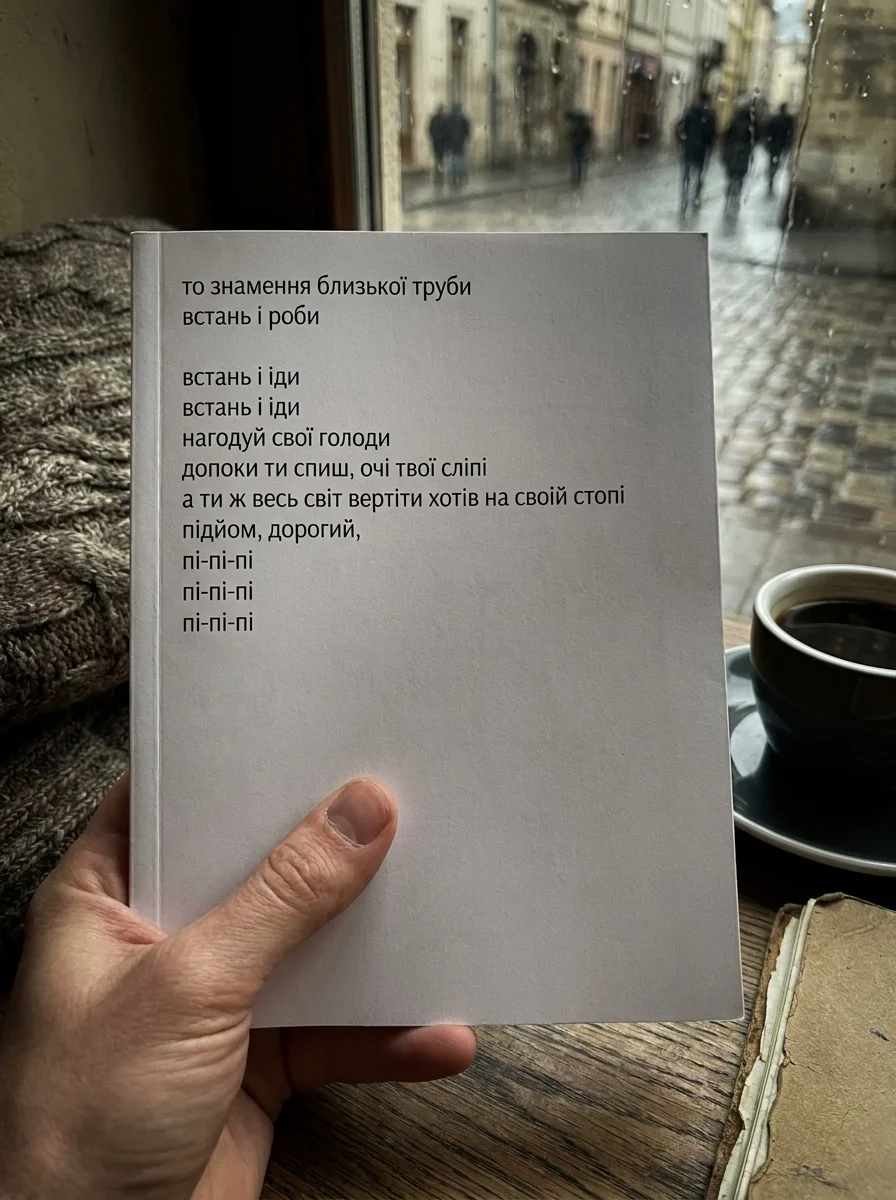 то знамення близької труби
встань і роби
встань і іди
встань і іди
нагодуй свої голоди
допоки ти спиш, очі твої сліпі
а ти ж весь світ вертіти хотів на своїй стопі
підйом, дорогий,
пі-пі-пі
пі-пі-пі
пі-пі-пі